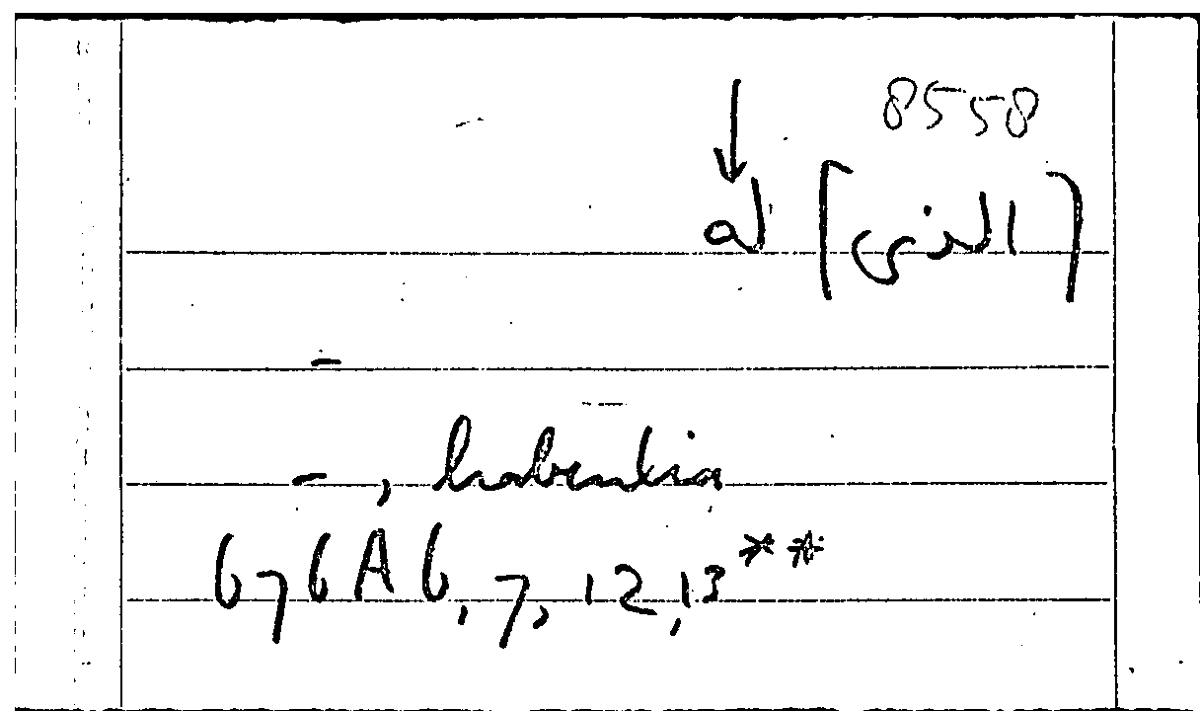 8558
[الذى] له
-
-, habentia
676A6,7,12,13**